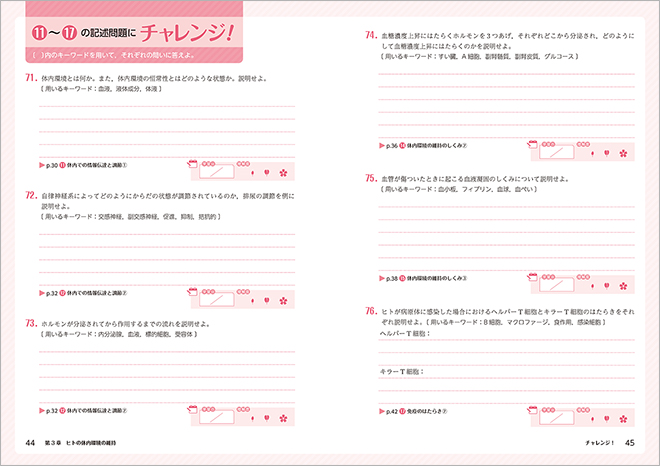 ⑪～⑰の記述問題に チャレンジ！
〔　〕内のキーワードを用いて，それぞれの問いに答えよ。
71. 体内環境とは何か。また，体内環境の恒常性とはどのような状態か。説明せよ。
〔 用いるキーワード：血液，液体成分，体液 〕
▶ p.30 ⑪ 体内での情報伝達と調節①
72. 自律神経系によってどのようにからだの状態が調節されているのか，排尿の調節を例に
説明せよ。
〔 用いるキーワード：交感神経，副交感神経，促進，抑制，拮抗的 〕
▶ p.32 ⑫ 体内での情報伝達と調節②
73. ホルモンが分泌されてから作用するまでの流れを説明せよ。
〔 用いるキーワード：内分泌腺，血液，標的細胞，受容体 〕
▶ p.32 ⑫ 体内での情報伝達と調節②
44 第３章 ヒトの体内環境の維持
74. 血糖濃度上昇にはたらくホルモンを３つあげ，それぞれどこから分泌され，どのように
して血糖濃度上昇にはたらくのかを説明せよ。
〔 用いるキーワード：すい臓，A 細胞，副腎髄質，副腎皮質，グルコース 〕
▶ p.36 ⑭ 体内環境の維持のしくみ②
75. 血管が傷ついたときに起こる血液凝固のしくみについて説明せよ。
〔 用いるキーワード：血小板，フィブリン，血球，血ぺい 〕
▶ p.38 ⑮ 体内環境の維持のしくみ③
76. ヒトが病原体に感染した場合におけるヘルパー T 細胞とキラー T 細胞のはたらきをそれ
ぞれ説明せよ。〔 用いるキーワード：B 細胞，マクロファージ，食作用，感染細胞 〕
ヘルパー T 細胞：
キラー T 細胞：
▶ p.42 ⑰ 免疫のはたらき②
チャレンジ！ 45